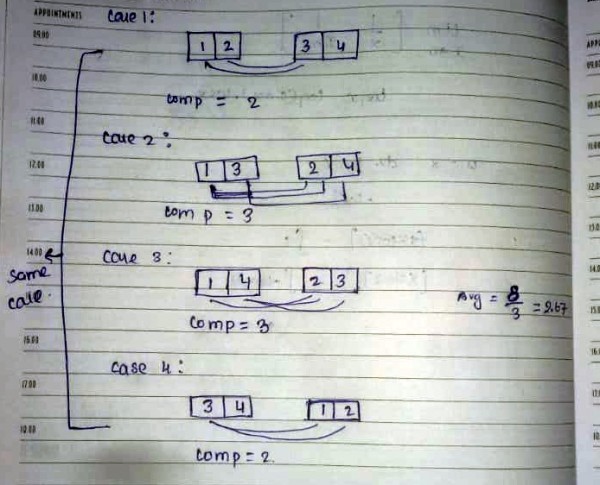 APPOINTMENTS
Case 1:
09.00
1 2 3 4
10.00
comp = 2
11.00
Case 2:
12.00
1 3 2 4
13.00
comp = 3
14.00
Same case.
Case 3:
1 4 2 3
Avg = 8/3 = 2.67
comp = 3
16.00
Case 4:
17.00
3 4 1 2
comp = 2